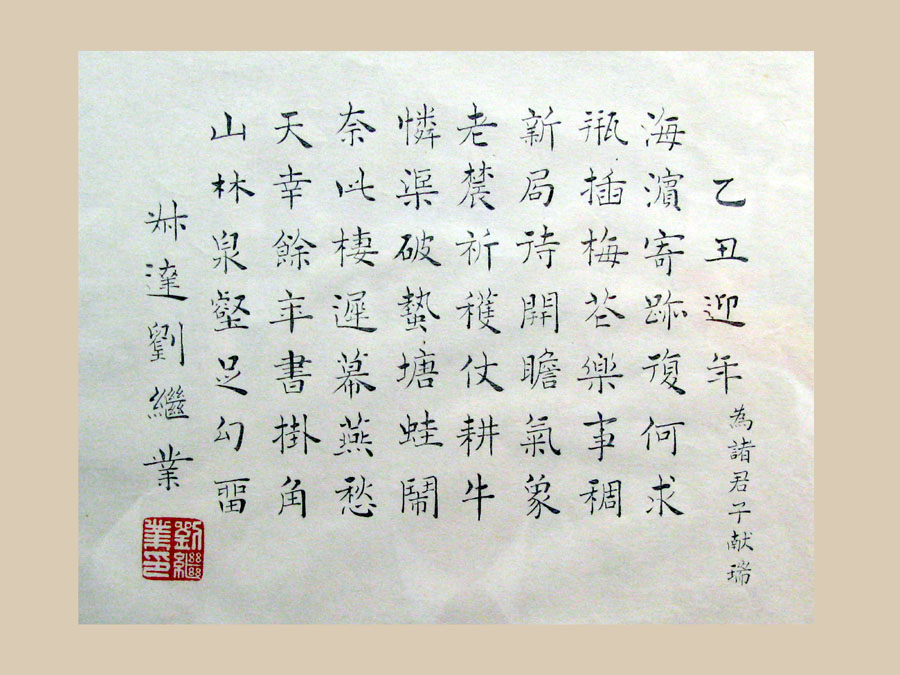 乙丑迎年 為諸君子献瑞
海濱寄跡復何求
瓶插梅花樂事稠
新局待開瞻氣象
老農祈穫仗耕牛
憐渠破蟄塘蛙鬧
奈此棲遲幕燕愁
天幸餘年書掛角
山林泉壑足勾留
叔達劉繼業
劉繼業印